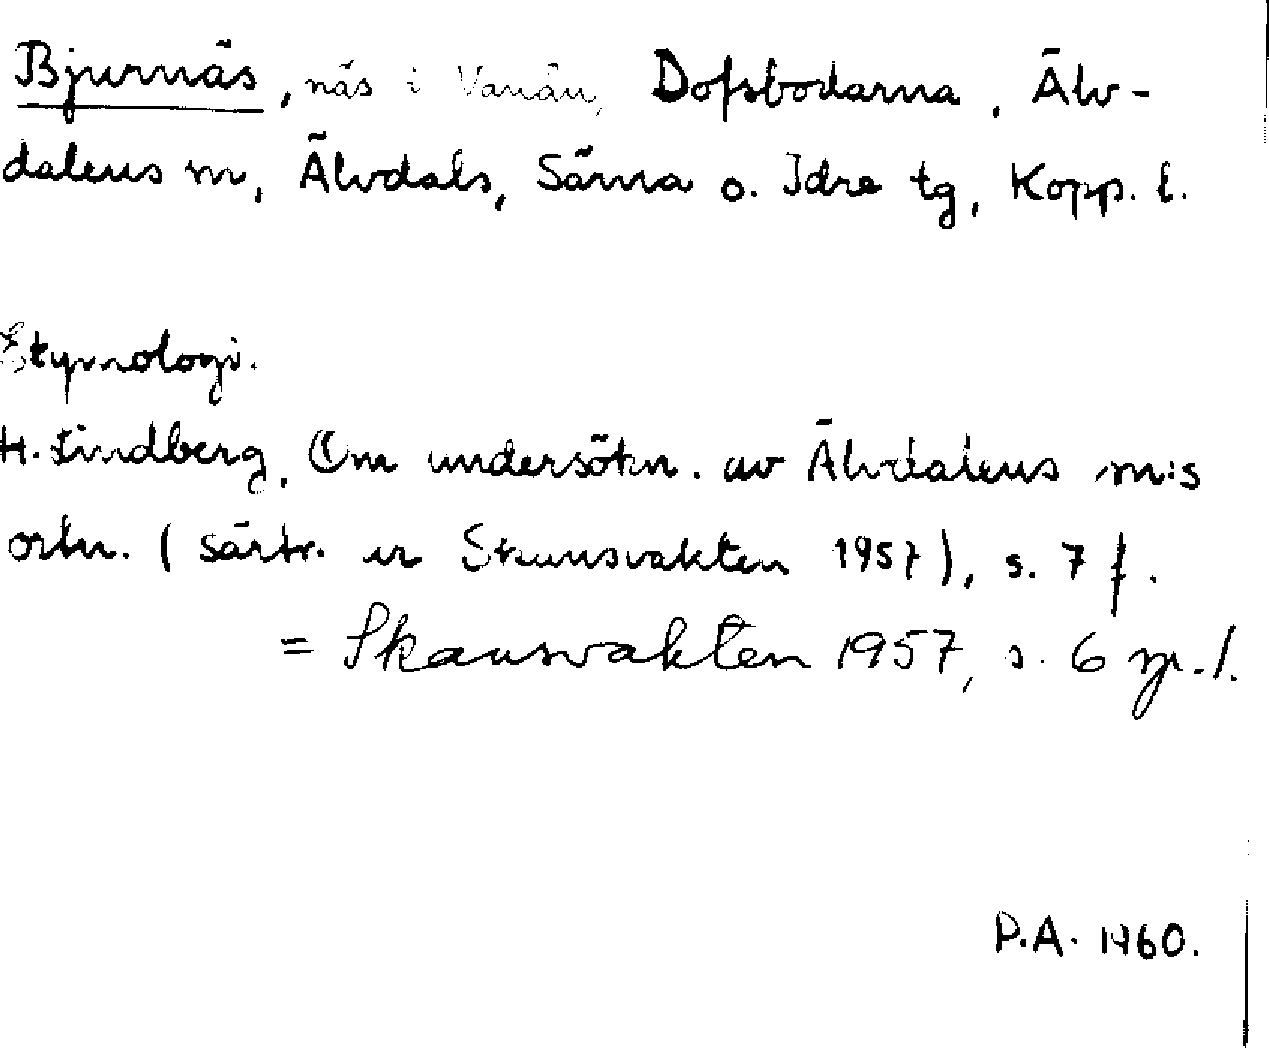 Bjurnäs, näs i Vanån, Dofsbodarna, Älv-
dalens m, Älvdals, Särna o. Idre tg, Kopp. l.
Etymologi.
H. Lindberg, Om undersökn. av Älvdalens m:s
ortn. (särtr. ur Skansvakten 1957), s. 7 f.
= Skansvakten 1957, s. 6 sp. 1.
P.A. 1960.